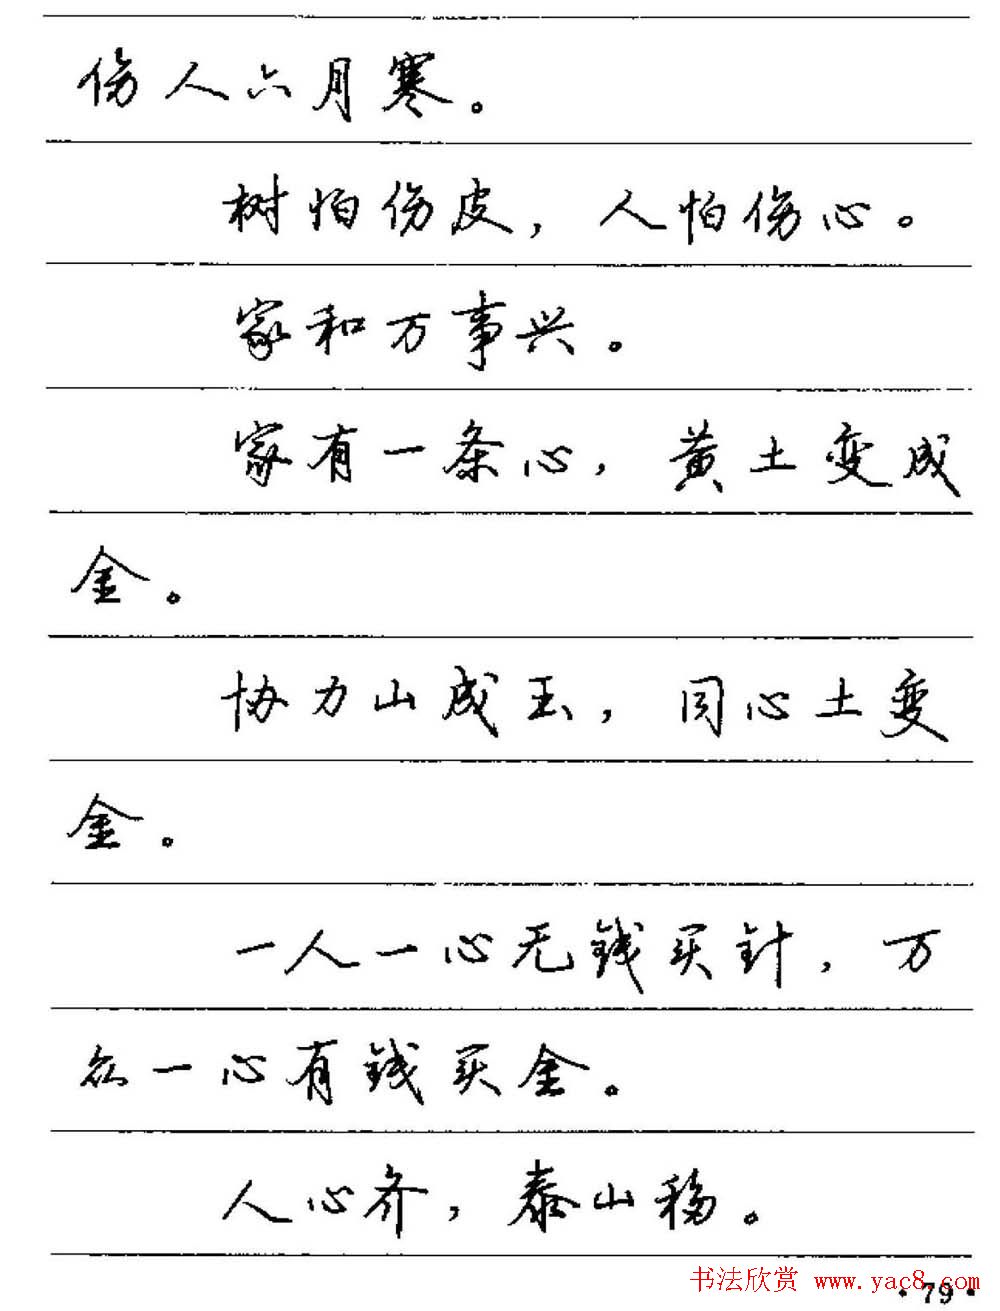 伤人六月寒。
树怕伤皮，人怕伤心。
家和万事兴。
家有一条心，黄土变成
金。
协力山成玉，同心土变
金。
一人一心无钱买针，万
众一心有钱买金。
人心齐，泰山移。
书法欣赏 www.yac8.com
·79·